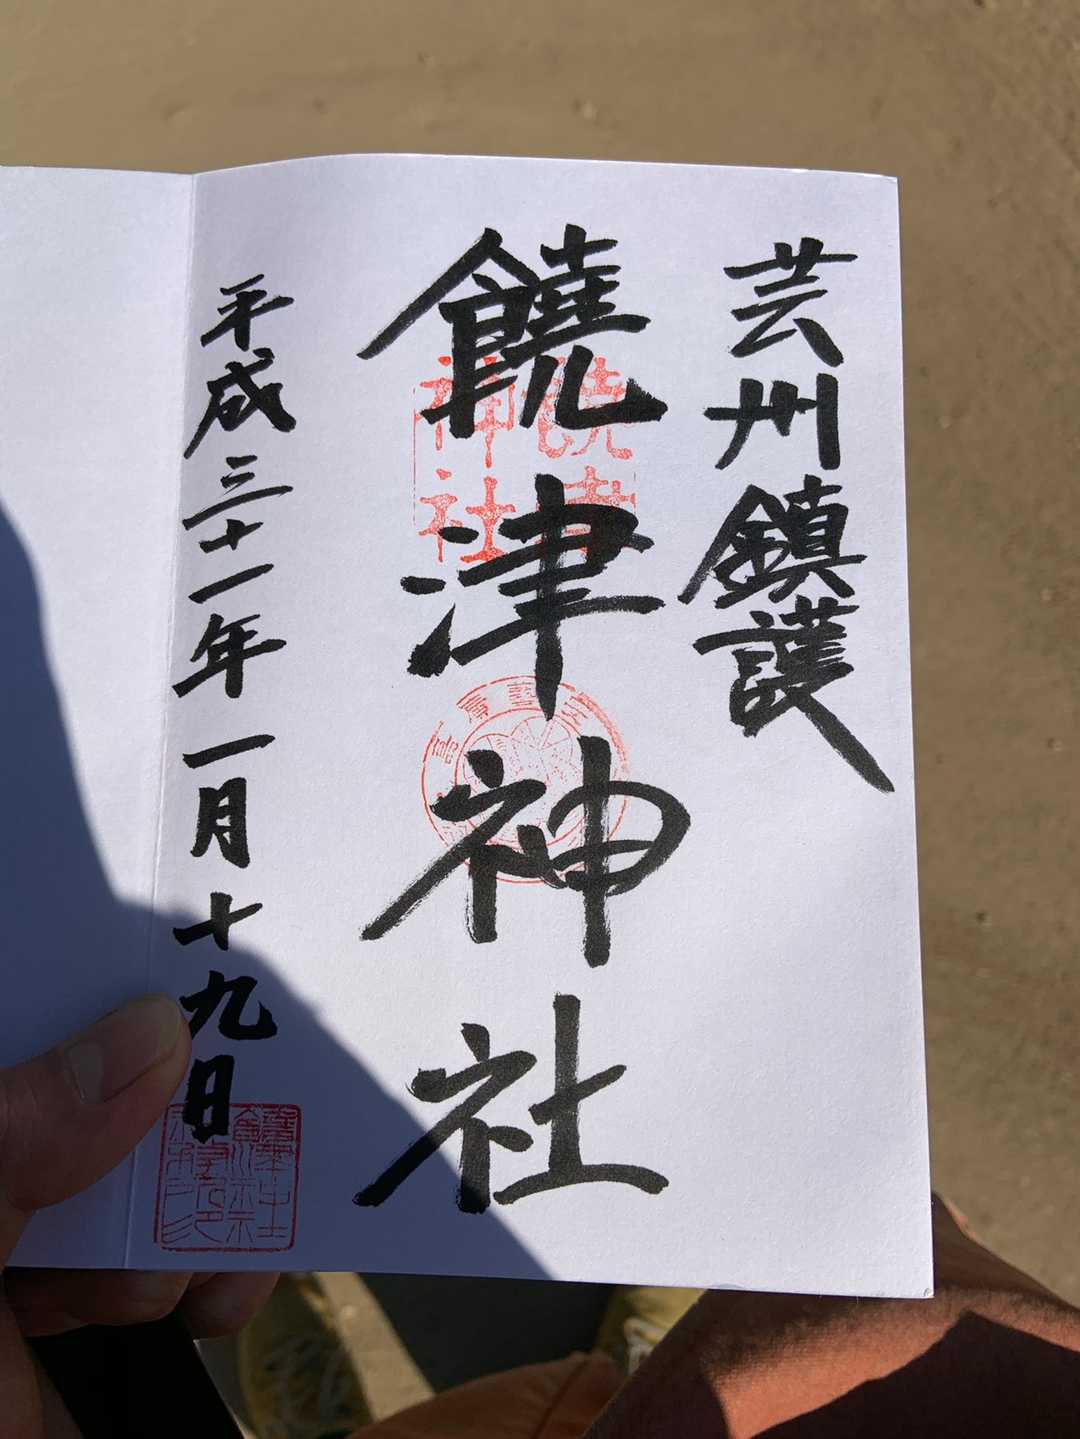 芸州鎮護
饒津神社
平成三十一年一月十九日
饒津
神社